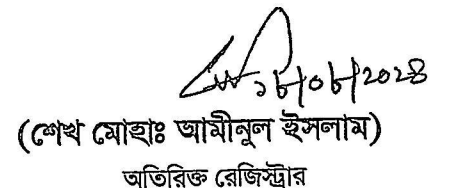 ১৮/০৮/২০২৪
(শেখ মোহাঃ আমীনুল ইসলাম)
অতিরিক্ত রেজিস্ট্রার